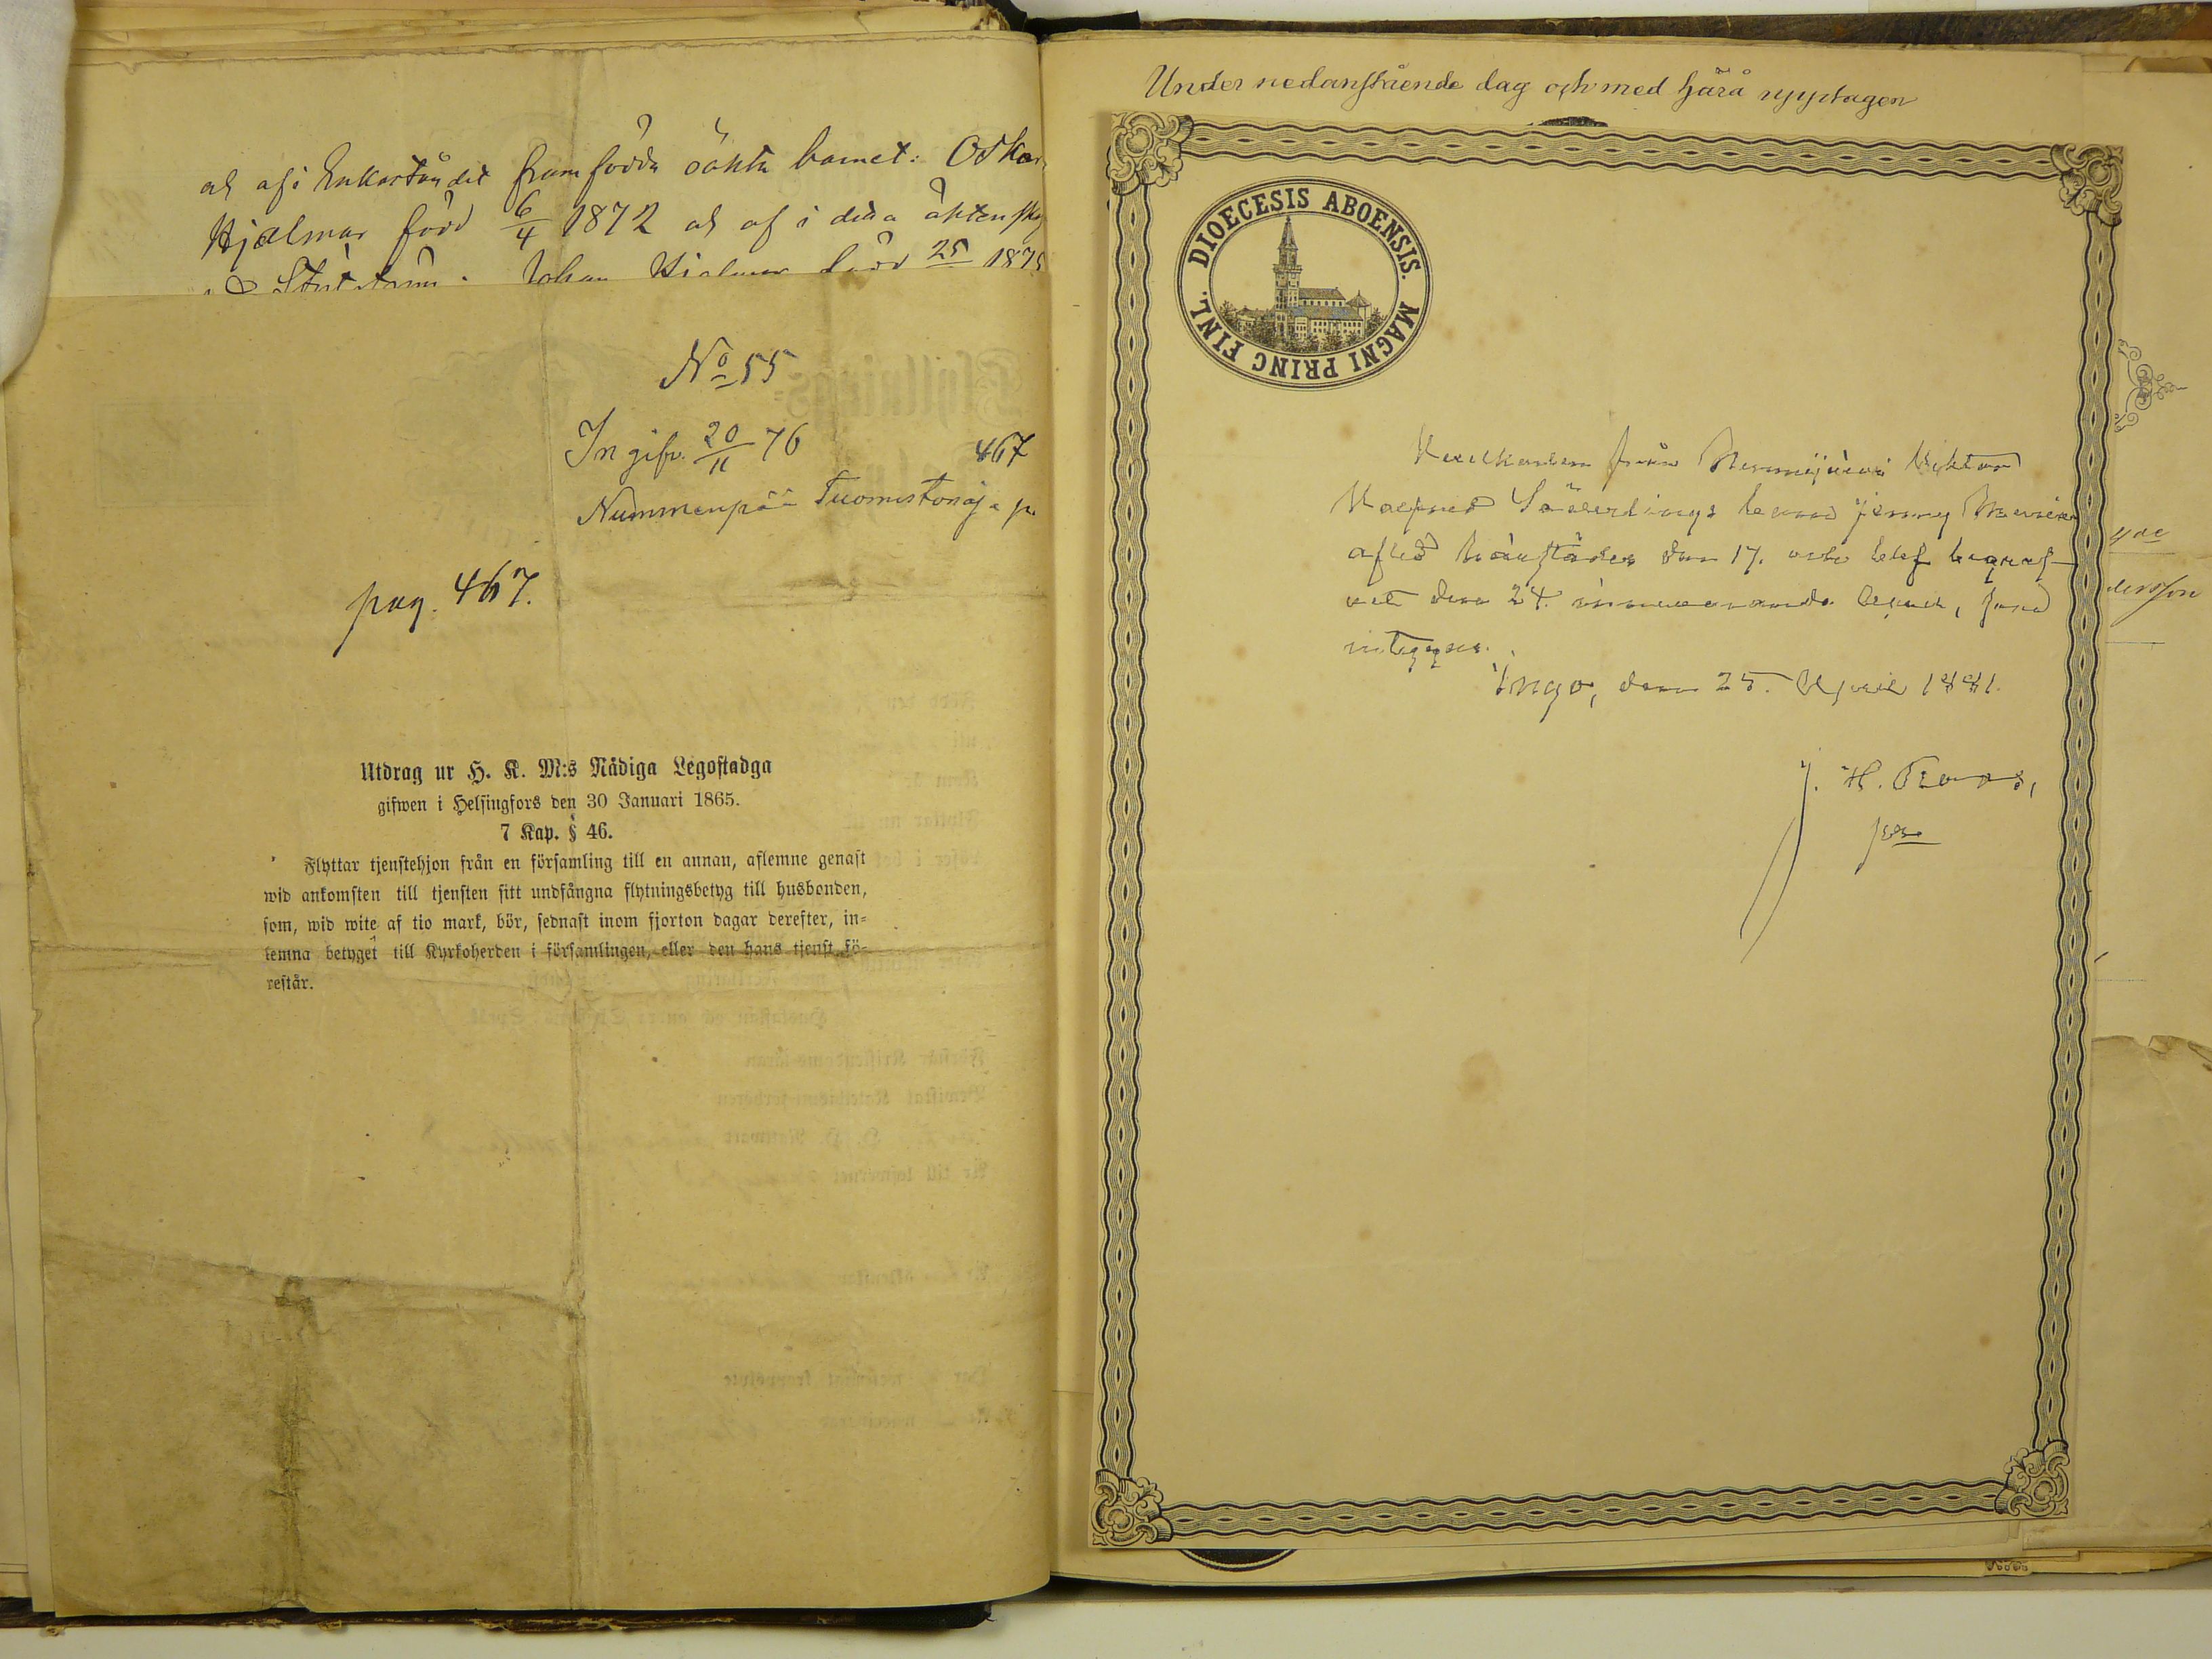 och af i Enkeståndet framfödda oäkta barnet: Oskar
Hjalmar född 6/4 1872 och af i detta äktenskap
Johan Hjalmar född 25 187
No 55
Ingifv. 20/11 76
467
Nummenpää Tuomistonoja
pag. 467.
Utdrag ur H. K. M:s Nådiga Legostadga
gifwen i Helsingfors den 30 Januari 1865.
7 Kap. § 46.
Flyttar tjenstehjon från en församling till en annan, aflemne genast
wid ankomsten till tjensten sitt undfångna flytningsbetyg till husbonden,
som, wid wite af tio mark, bör, sednast inom fjorton dagar derefter, in=
lemna betyget till Kyrkoherden i församlingen, eller den hans tjenst fö=
restår.
Under nedanstående dag och med härå upptagen
DIOECESIS ABOENSIS. MAGNI PRINC FINL.
från Nummijärvi Viktor
Söderlings barn Jenny Maria
afled härstädes den 17. och blef begraf-
vet den 24. innevarande April, som
intygas.
Ingo, den 25. April 1881.
J. H.